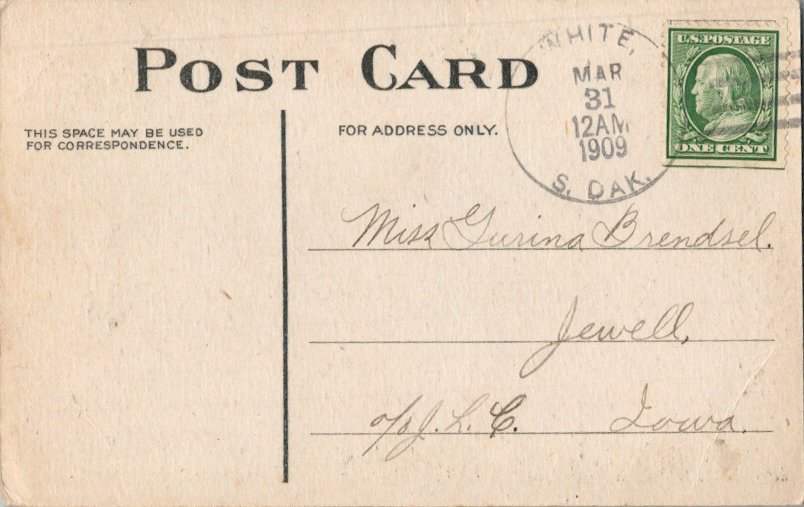 POST CARD
THIS SPACE MAY BE USED
FOR CORRESPONDENCE.
FOR ADDRESS ONLY.
WHITE,
MAR
31
12AM
1909
S. DAK.
U.S. POSTAGE
ONE CENT
Miss Gurina Brendsel.
Jewell,
c/o J. L. C. Iowa.